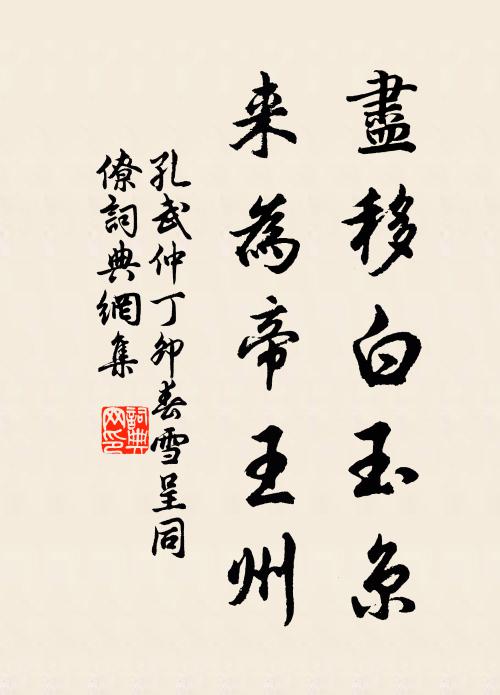 盡移白玉京
来為帝王州
孔武仲丁卯春雪呈同
僚詞典網集
詞典网印